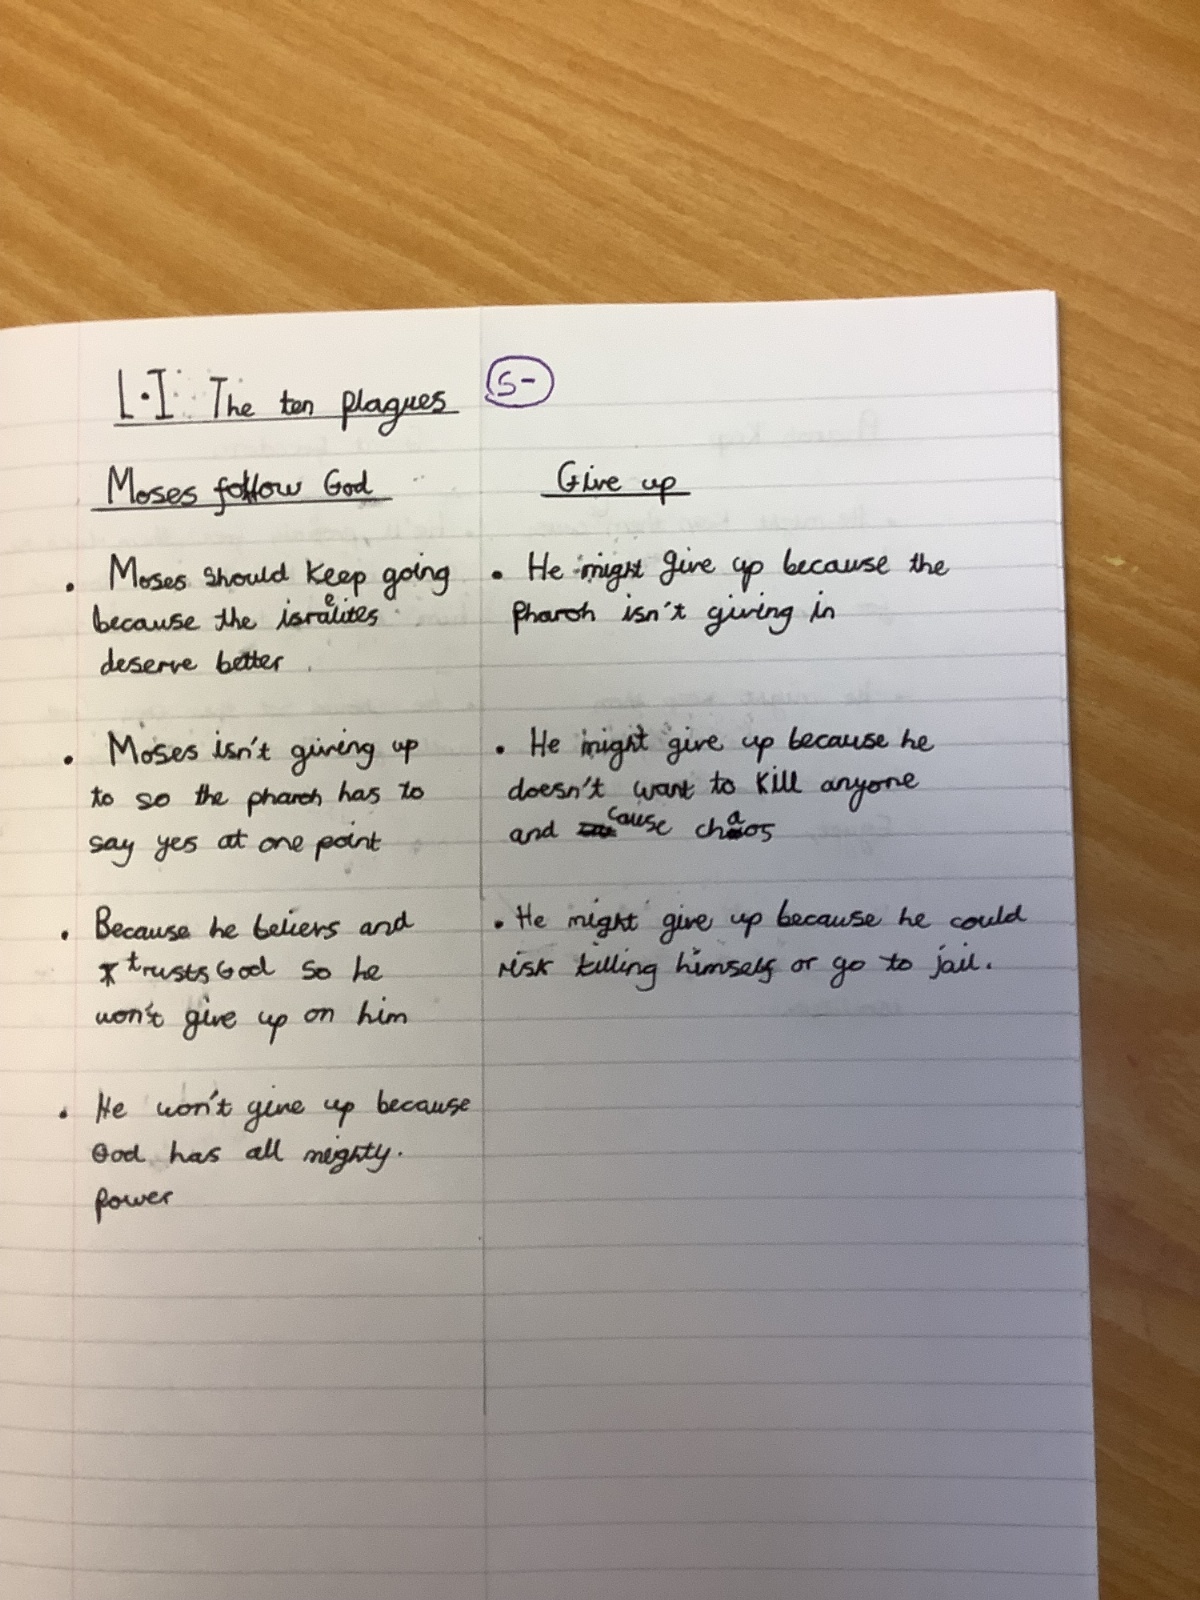 L.I: The ten plagues
S-
Moses follow God
• Moses should keep going
because the israelites
deserve better
• Moses isn't giving up
to so the pharoh has to
say yes at one point
• Because he beliers and
trusts God so he
won't give up on him
• He won't give up because
God has all mighty.
power
Give up
• He might give up because the
pharoh isn't giving in
• He might give up because he
doesn't want to kill anyone
and cause chaos
• He might give up because he could
risk killing himself or go to jail.